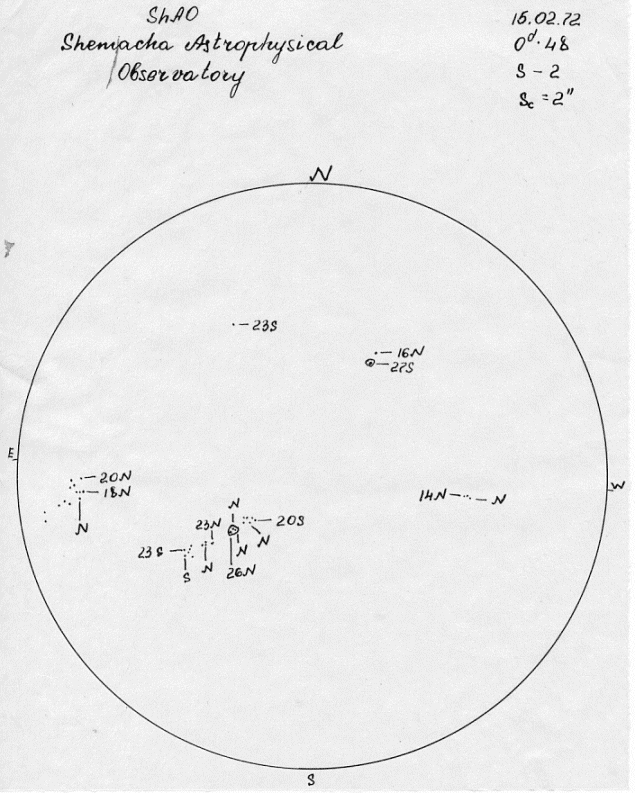 ShAO
Shemacha Astrophysical
Observatory
15.02.72
0d.48
S - 2
Sc = 2"
N
23S
16N
27S
E
20N
18N
N
14N
N
W
N
23N
20S
23S
N
N
N
S
26N
S